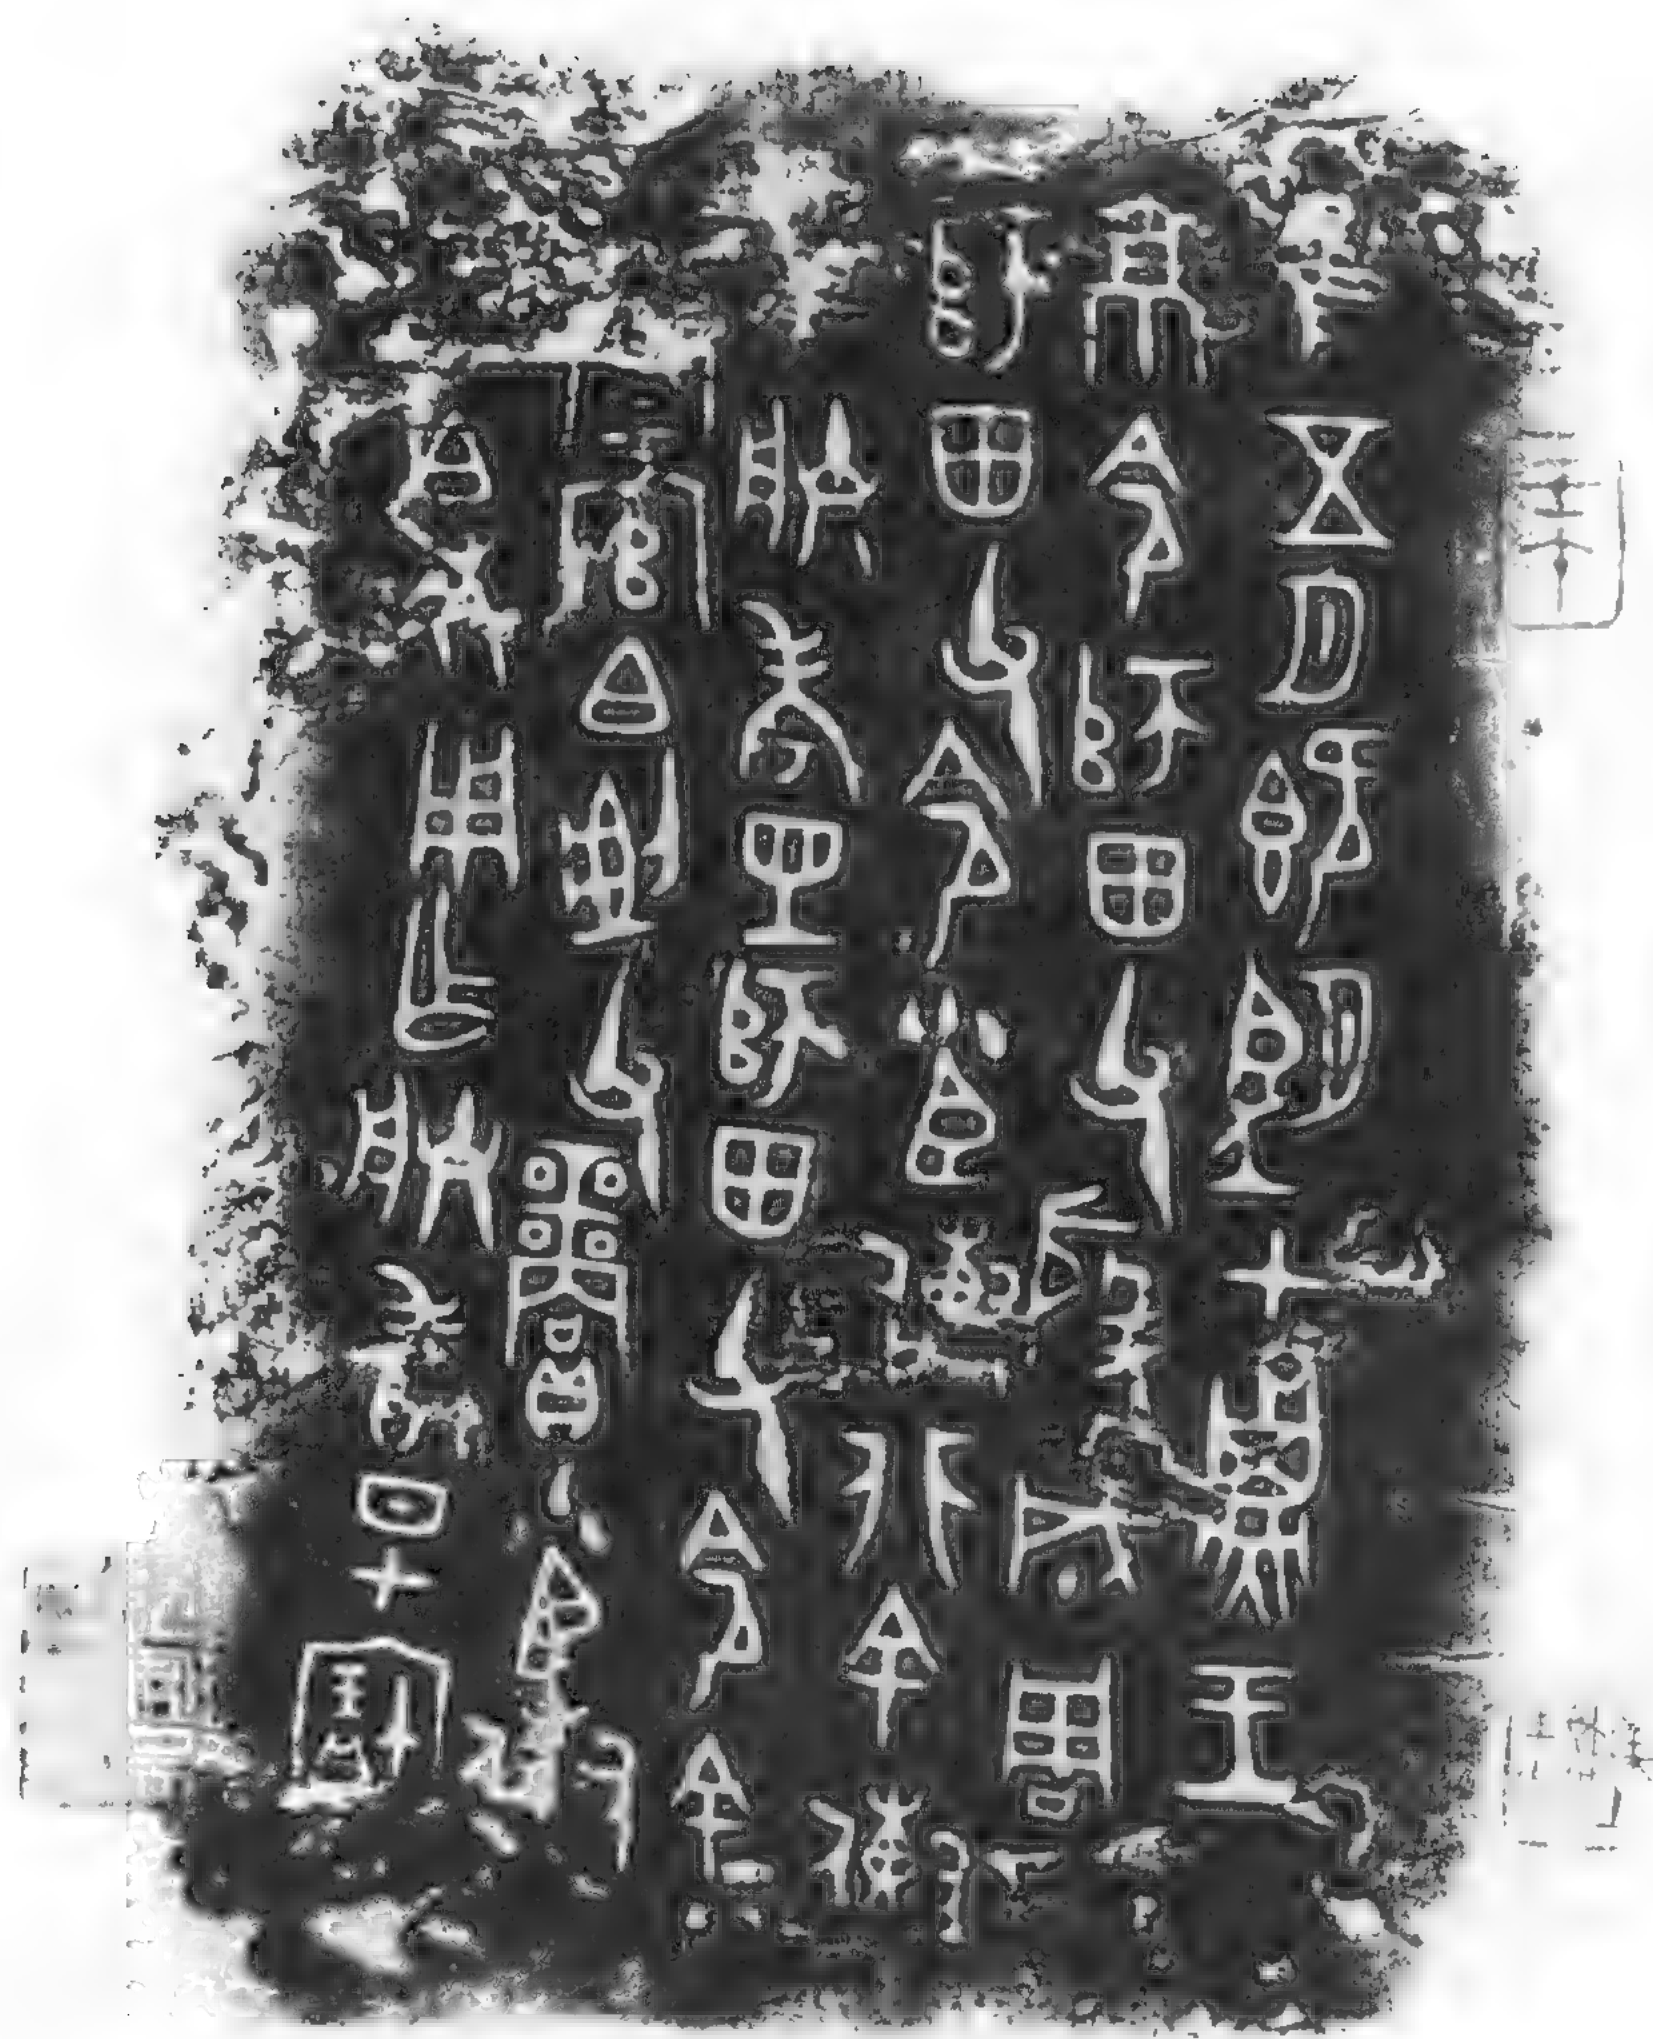 隹五月既望甲子王
京令師田父殷成周
師田父令小臣傳非余傳
朕考師田父令余
官白父賞小臣傳
白休用乍朕考日甲寶